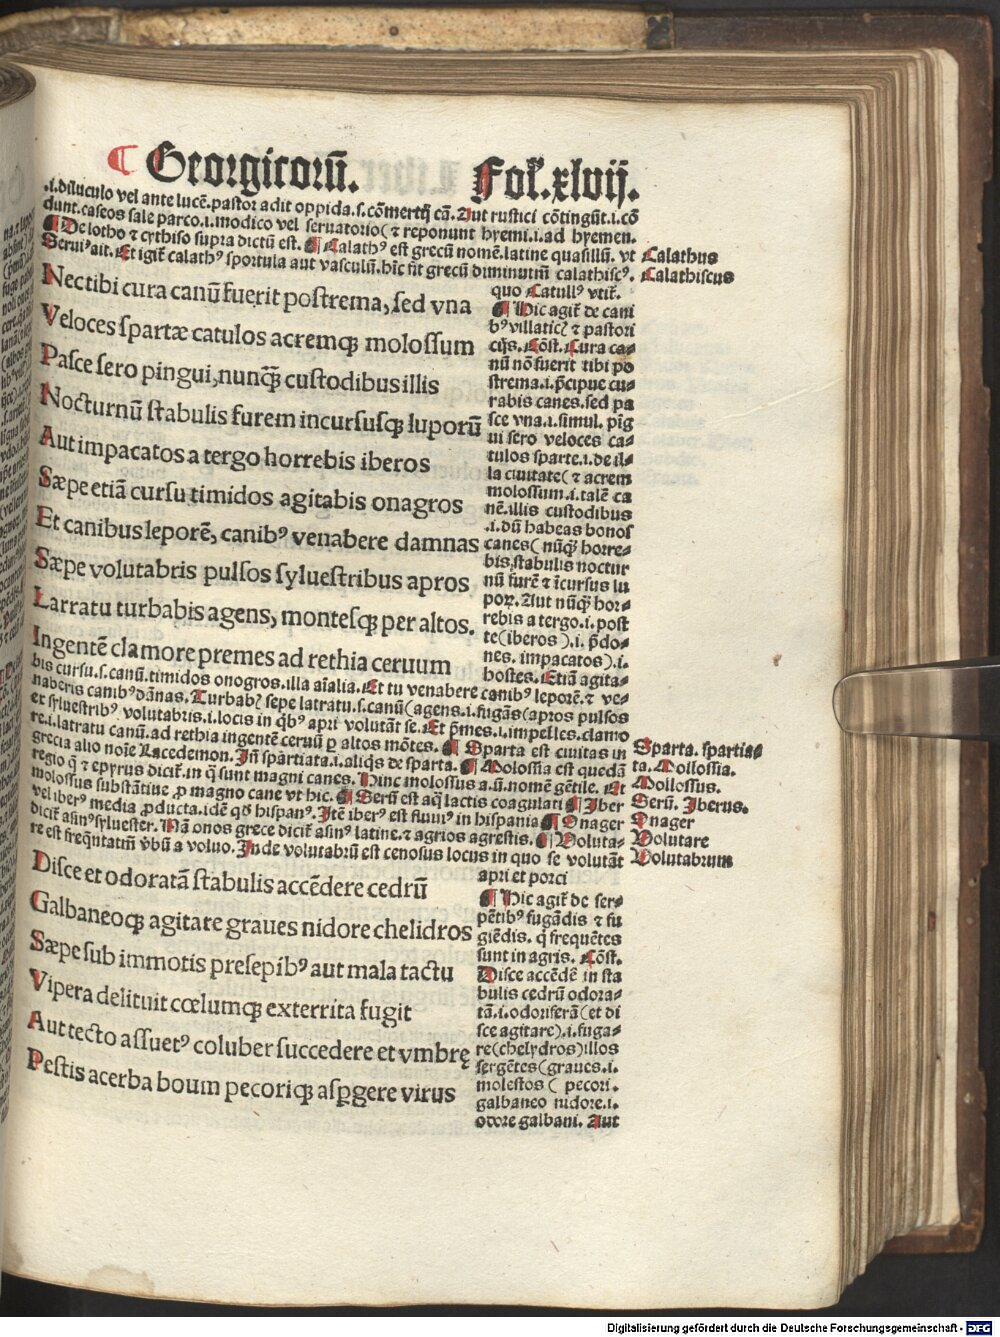 Georgicorū. Fol. xlvij.
.i. diluculo vel ante lucē. pastor adit oppida. s. cōmertij cā. Aut rustici cōtingūt. i. cō
dunt. caseos sale parco. i. modico vel seruatorio( ⁊ reponunt hyemi. i. ad hyemen.
¶ De lotho ⁊ cythiso supra dictū est. ¶ Calathꝰ est grecū nomē. latine quasillū. vt
Seruiꝰ ait. Et igit̄ calathꝰ sportula aut vasculū. hīc fit grecū diminutiuū calathiscꝰ.
Calathus
Calathiscus
quo Catullꝰ vtit̄.
Nec tibi cura canū fuerit postrema, sed vna
Veloces spartæ catulos acremqꝫ molossum
Pasce sero pingui, nunqꝫ̄ custodibus illis
Nocturnū stabulis furem incursusqꝫ luporū
Aut impacatos a tergo horrebis iberos
Sæpe etiā cursu timidos agitabis onagros
Et canibus leporē, canibꝰ venabere damnas
Sæpe volutabris pulsos syluestribus apros
Larratu turbabis agens, montesqꝫ per altos.
Ingentē clamore premes ad rethia ceruum
¶ Hic agit̄ de cani
bꝰ villaticꝭ ⁊ pastori
cijs. Cōst. Cura ca⸗
nū nō fuerit tibi po
strema. i. p̄cipue cu⸗
rabis canes. sed pa
sce vna. i. simul. pīg
ui sero veloces ca⸗
tulos sparte. i. de il⸗
la ciuitate( ⁊ acrem
molossum. i. talē ca
nē. illis custodibus
.i. dū habeas bonos
canes( nūqꝫ̄ horre⸗
bis, stabulis noctur
nū furē ⁊ īcursus lu
poꝝ. Aut nūqꝫ̄ hor⸗
rebis a tergo. i. post
te(iberos ). i. p̄do⸗
nes. impacatos). i.
hostes. Etiā agita⸗
bis cursu. s. canū. timidos onogros. illa aīalia. Et tu venabere canibꝰ leporē. ⁊ ve⸗
naberis canibꝰ dānas. Turbabꝭ sepe latratu. s. canū( agens. i. fugās(apros pulsos
et syluestribꝰ volutabris. i. locis in qͥbꝰ apri volutāt se. Et p̄mes. i. impelles. clamo
re. i. latratu canū. ad rethia ingentē ceruū ꝑ altos mōtes. ¶ Sparta est ciuitas in
grecia alio noīe Lacedemon. Īn̄ spartiata. i. aliqͥs de sparta. ¶ Molossia est quedā
regio q̄ ⁊ epyrus dicit̄. in q̄ sunt magni canes. Hinc molossus a. ū. nomē gētile. Et
molossus substātiue ꝓ magno cane vt hic. ¶ Serū est aq̄ lactis coagulati ¶ Iber
vel iberꝰ media ꝓducta. idē qð hispanꝰ. Itē iberꝰ est fluuiꝰ in hispania ¶ Onager
dicit̄ asinꝰ syluester. Nā onos grece dicit̄ asinꝰ latine. ⁊ agrios agrestis. ¶ Voluta⸗
re est freq̄ntatiū ꝟbū a voluo. Inde volutabrū est cenosus locus in quo se volutāt
apri et porci
Sparta. spartia⸗
ta. Mollossia.
Moilossus.
Serū. Iberus.
Onager
Volutare
Volutabrum
Disce et odoratā stabulis accēdere cedrū
Galbaneoqꝫ agitare graues nidore chelidros
Sæpe sub immotis presepibꝰ aut mala tactu
Vipera delituit cœlumqꝫ exterrita fugit
Aut tecto assuetꝰ coluber succedere et vmbrę
Pestis acerba boum pecoriqꝫ aspgere virus
¶ Hic agit̄ de ser⸗
pētibꝰ fugādis ⁊ fu
giēdis. q̄ frequētes
sunt in agris. Cōst.
Disce accēdē in sta
bulis cedrū odora⸗
tā. i. odoriferā( et di
sce agitare). i. fuga⸗
re(chelydros)illos
sergētes(graues. i.
molestos ( pecori.
galbaneo nidore. i.
odore galbani. Aut
Digitalisierung gefördert durch die Deutsche Forschungsgemeinschaft - DFG